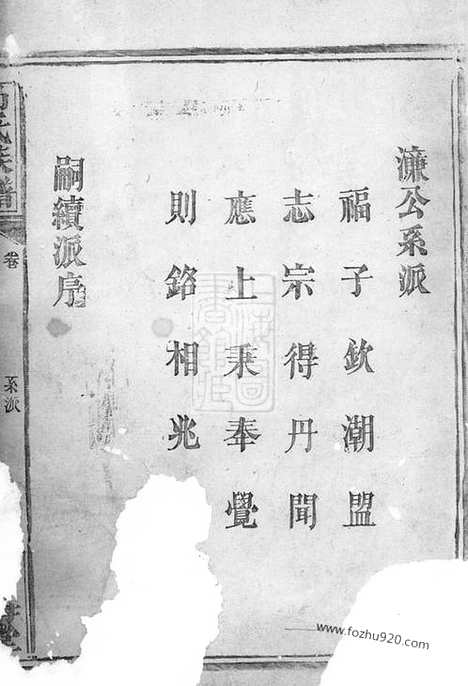 濂公系派
福子欽潮盟
志宗得丹聞
應上秉奉覺
則銘相兆
嗣續派序
氏族譜
卷
系派
www.fozhu920.com